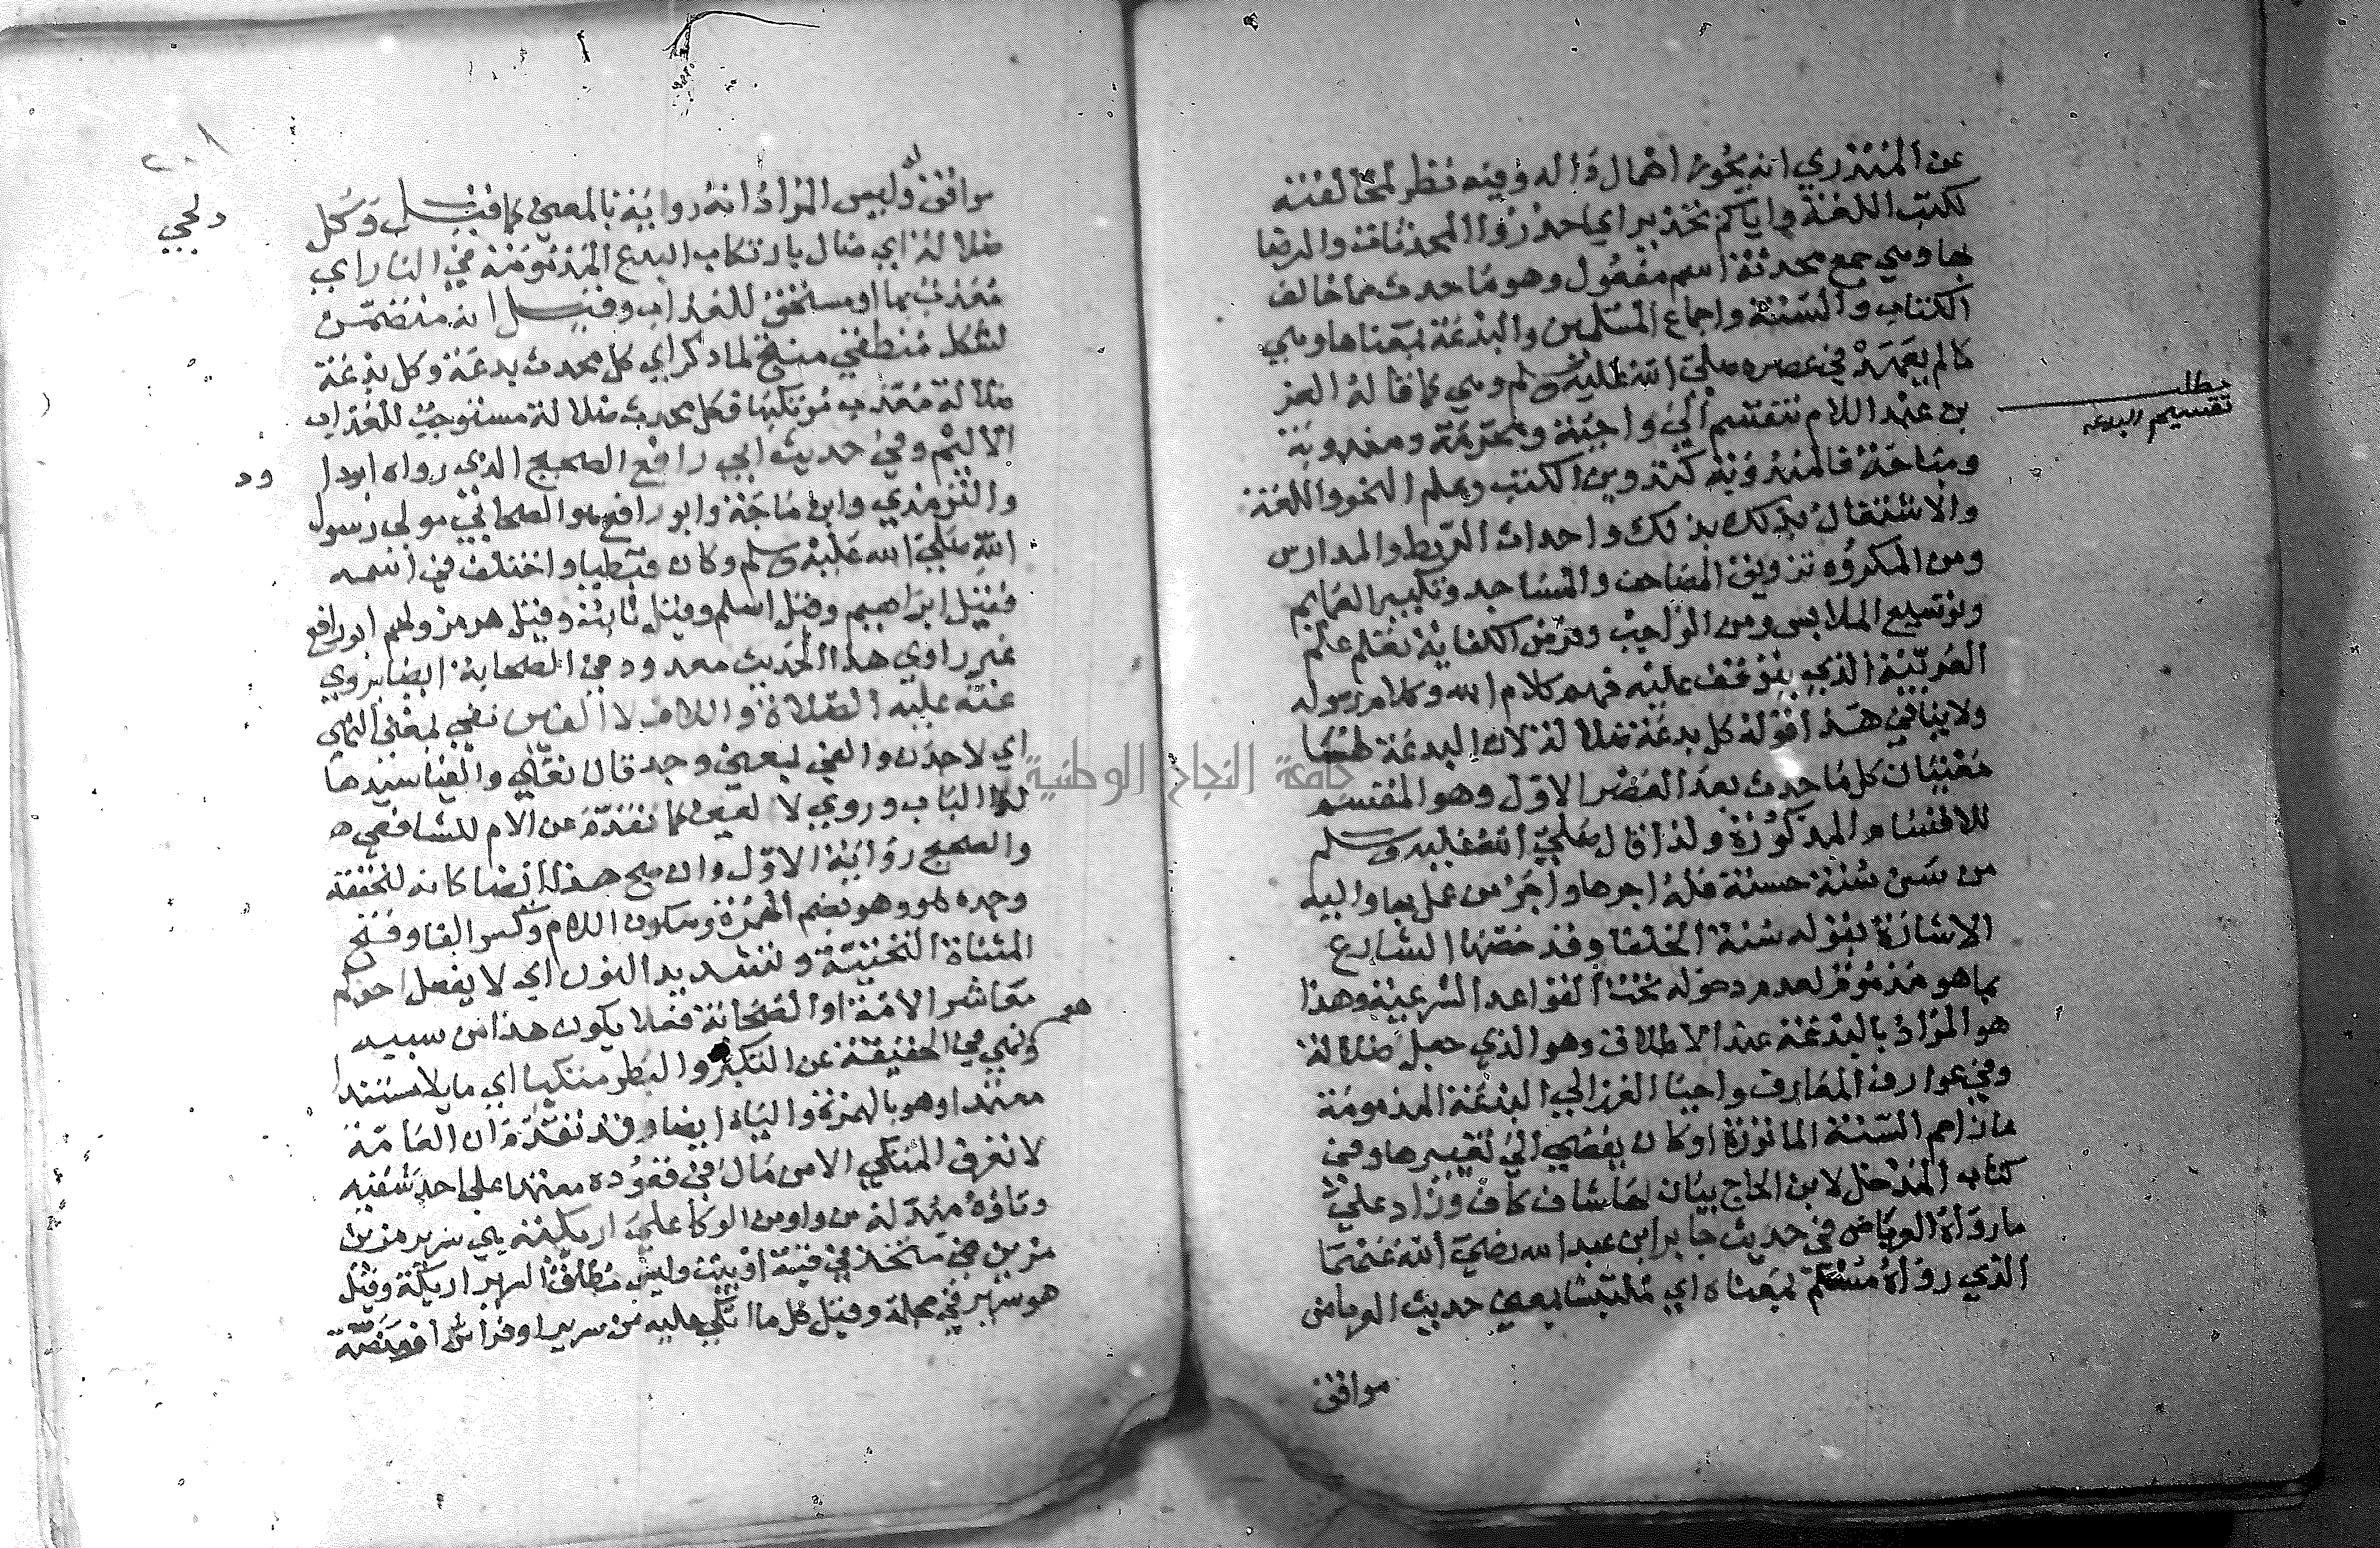 عن المنذري انه يجوز اهمال داله وفيه نظر لمخالفته
لكتب اللغة واياكم تحذير اي احذروا المحدثات والرضا
بها وهي جمع محدثة اسم مفعول وهو ما حدث مما خالف
الكتاب والسنة واجماع المسلمين والبدعة بمعناها وهي
مالم يعهد في عصره صلى الله عليه وسلم وهي كما قاله العز
بن عبد اللام تنقسم الى واجبة ومحرمة ومندوبة
مطلب
تقسيم البدعه
ومباحة فالمندوبة كتدوين الكتب وعلم النحو واللغة
والاشتغال بذلك واحداث الربط والمدارس
ومن المكروه تزويق المصاحف والمساجد وتكبير العمايم
وتوسيع الملابس ومن الواجب وفرض الكفاية تعلم علم
العربية الذي يتوقف عليه فهم كلام الله وكلام رسوله
ولا ينافي هذا قوله كل بدعة ضلالة لان البدعة لها
معنيان كل ما حدث بعد العصر الاول وهو المقتسم
للاقسام المذكورة ولذا قال صلى الله عليه وسلم
من سن سنة حسنة فله اجرها واجر من عمل بها واليه
الاشارة بقوله سنة الخلفا وقد خصها الشارع
بما هو مذموم لعدم دخوله تحت القواعد الشرعية وهذا
هو المراد بالبدعة عند الاطلاق وهو الذي جعل ضلالة
وفي عوارف المعارف واحيا الغزالي البدعة المذمومة
مازاحم السنة الماثورة او كان يفضي الى تغييرها وفي
كتاب المدخل لابن الحاج بيان لها شاف كاف وزاد على
ما رواه العرباض في حديث جابر ابن عبد الله رضي الله عنهما
الذي رواه مسلم بمعناه اي ملتبسا بمعنى حديث العرباض
موافق
دلجي
موافق له وليس المراد انه رواية بالمعنى كما قيل وكل
ضلالة اي ضال بارتكاب البدع المذمومة في النار اي
معذب بها او مستحق للعذاب وقيل انه متضمن
لشكل منطقي منتج لما ذكر اي كل محدث بدعة وكل بدعة
ضلالة معذب مرتكبها فكل محدث ضلالة مستوجب للعذاب
الاليم وفي حديث ابي رافع الصحيح الذي رواه ابودا ود
والترمذي وابن ماجة وابو رافع هو الصحابي مولى رسول
الله صلى الله عليه وسلم وكان قبطيا واختلف في اسمه
فقيل ابراهيم وقيل اسلم وقيل ثابت وقيل هرمز ولهم ابو رافع
غير راوي هذا الحديث معدود من الصحابة ايضا يروي
عنه عليه الصلاة واللام لا الفين نفي بمعنى النهي
اي لا اجدن والفي بمعنى وجد قال تعالى والفيا سيدها
لدا الباب وروي لا لفين كما تقدم عن الام للشافعي
والصحيح رواية الاول وان صح هذا ايضا كانه لتحققه
وجده لهو وهو بضم الهمزة وسكون اللام وكسر الفا وفتح
المثناة التحتية وتشديد النون اي لا يفعل احدكم
معاشر الامة او الصحابة فعلا يكون هذا من سببه
هو
ونهي في الحقيقة عن التكبر والبطر متكيا اي مايلا مستندا
معتمدا وهو بالهمزة والياء ايضا وقد تقدم ان العامة
لا تعرف المتكي الا من مال في قعوده معتمدا على احد شقيه
وتاؤه مبدلة من واو من الوكا على اريكته هي سرير مزين
مزين متخذ في قبة او بيت وليس مطلق السرير اريكة وقيل
هو سرير في حجلة وقيل كل ما اتكي عليه من سرير او فراش او منصة